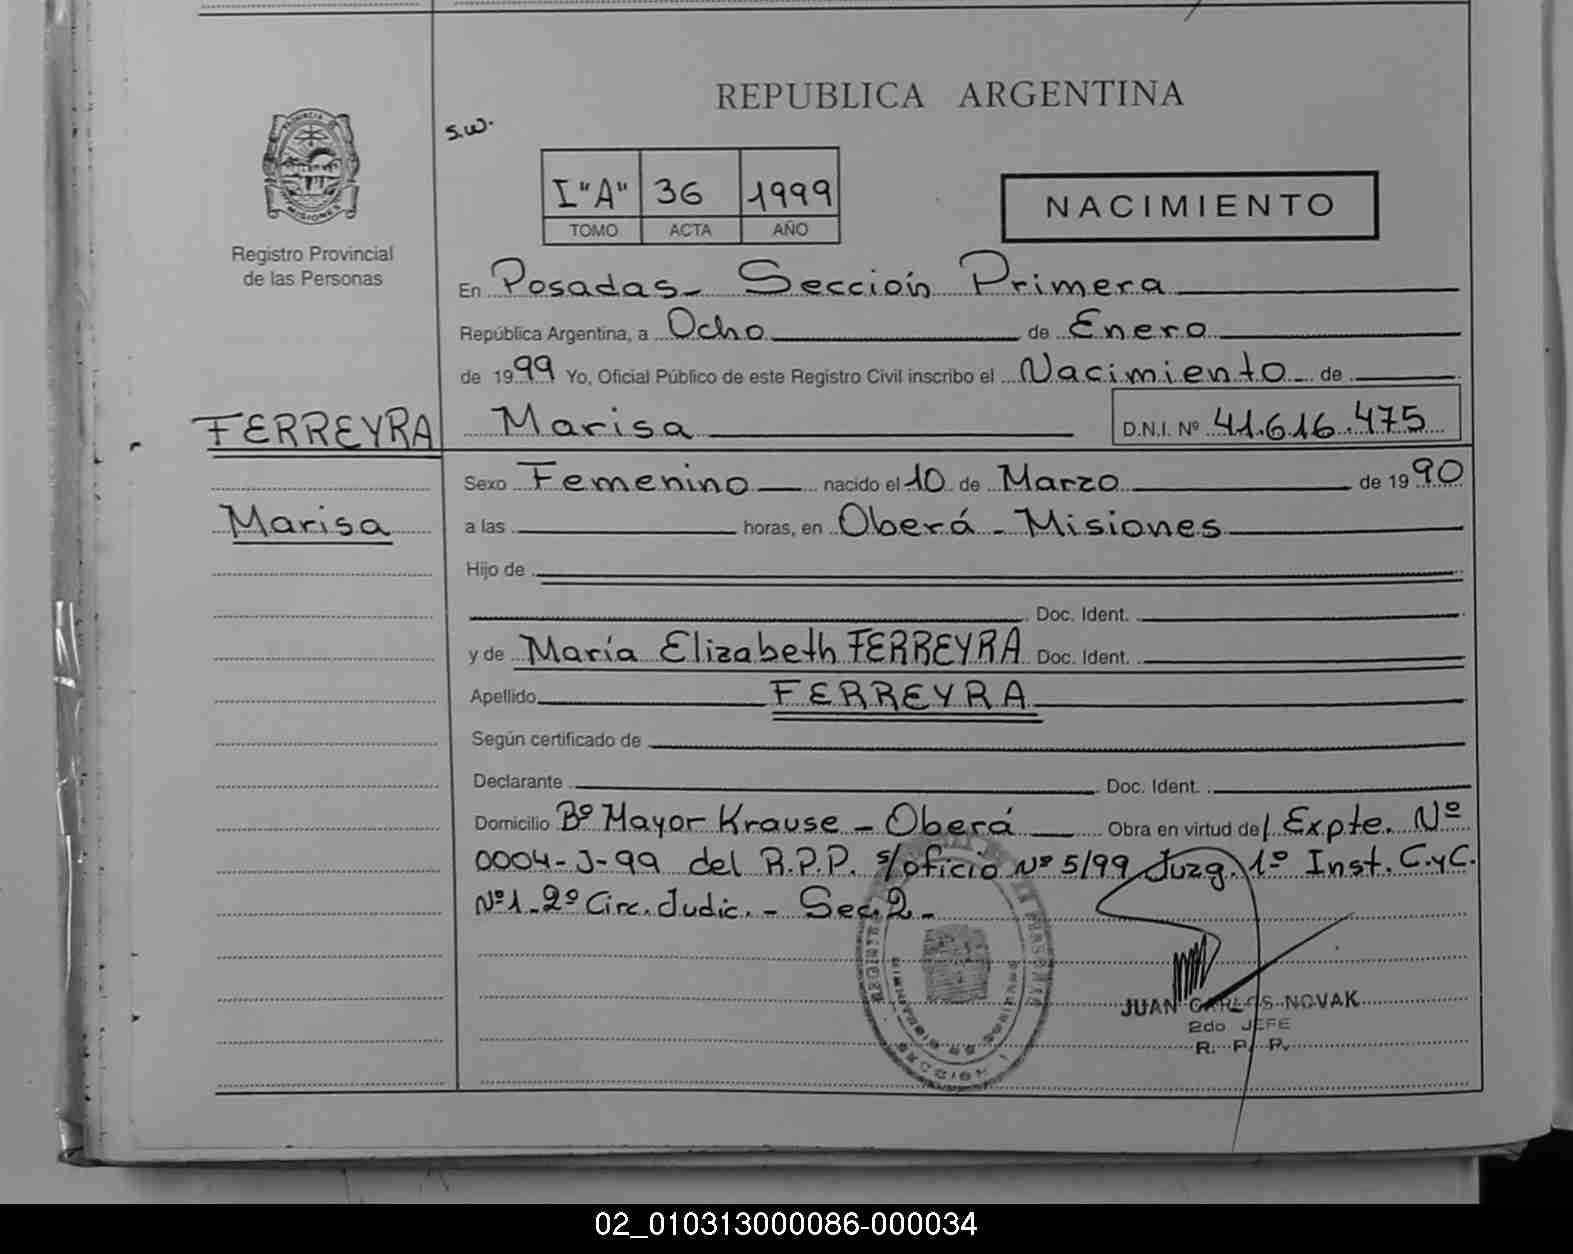 REPUBLICA ARGENTINA
s.w.
I "A" 36 1999
TOMO ACTA AÑO
NACIMIENTO
Registro Provincial
de las Personas
En Posadas- Sección Primera
República Argentina, a Ocho de Enero
de 1999 Yo, Oficial Público de este Registro Civil inscribo el Nacimiento de
FERREYRA
Marisa
Marisa D.N.I. Nº 41.616.475
Sexo Femenino nacido el 10 de Marzo de 1990
a las horas, en Oberá - Misiones
Hijo de
Doc. Ident.
y de María Elizabeth FERREYRA Doc. Ident.
Apellido FERREYRA
Según certificado de
Declarante Doc. Ident.
Domicilio Bº Mayor Krause - Oberá Obra en virtud de/ Expte. Nº
0004-J-99 del R.P.P. s/oficio Nº 5/99 Juzg. 1º Inst. C.yC.
Nº1-2º Circ. Judic. - Sec. 2-
JUAN CARLOS NOVAK
2do JEFE
R. P. P.
02_010313000086-000034